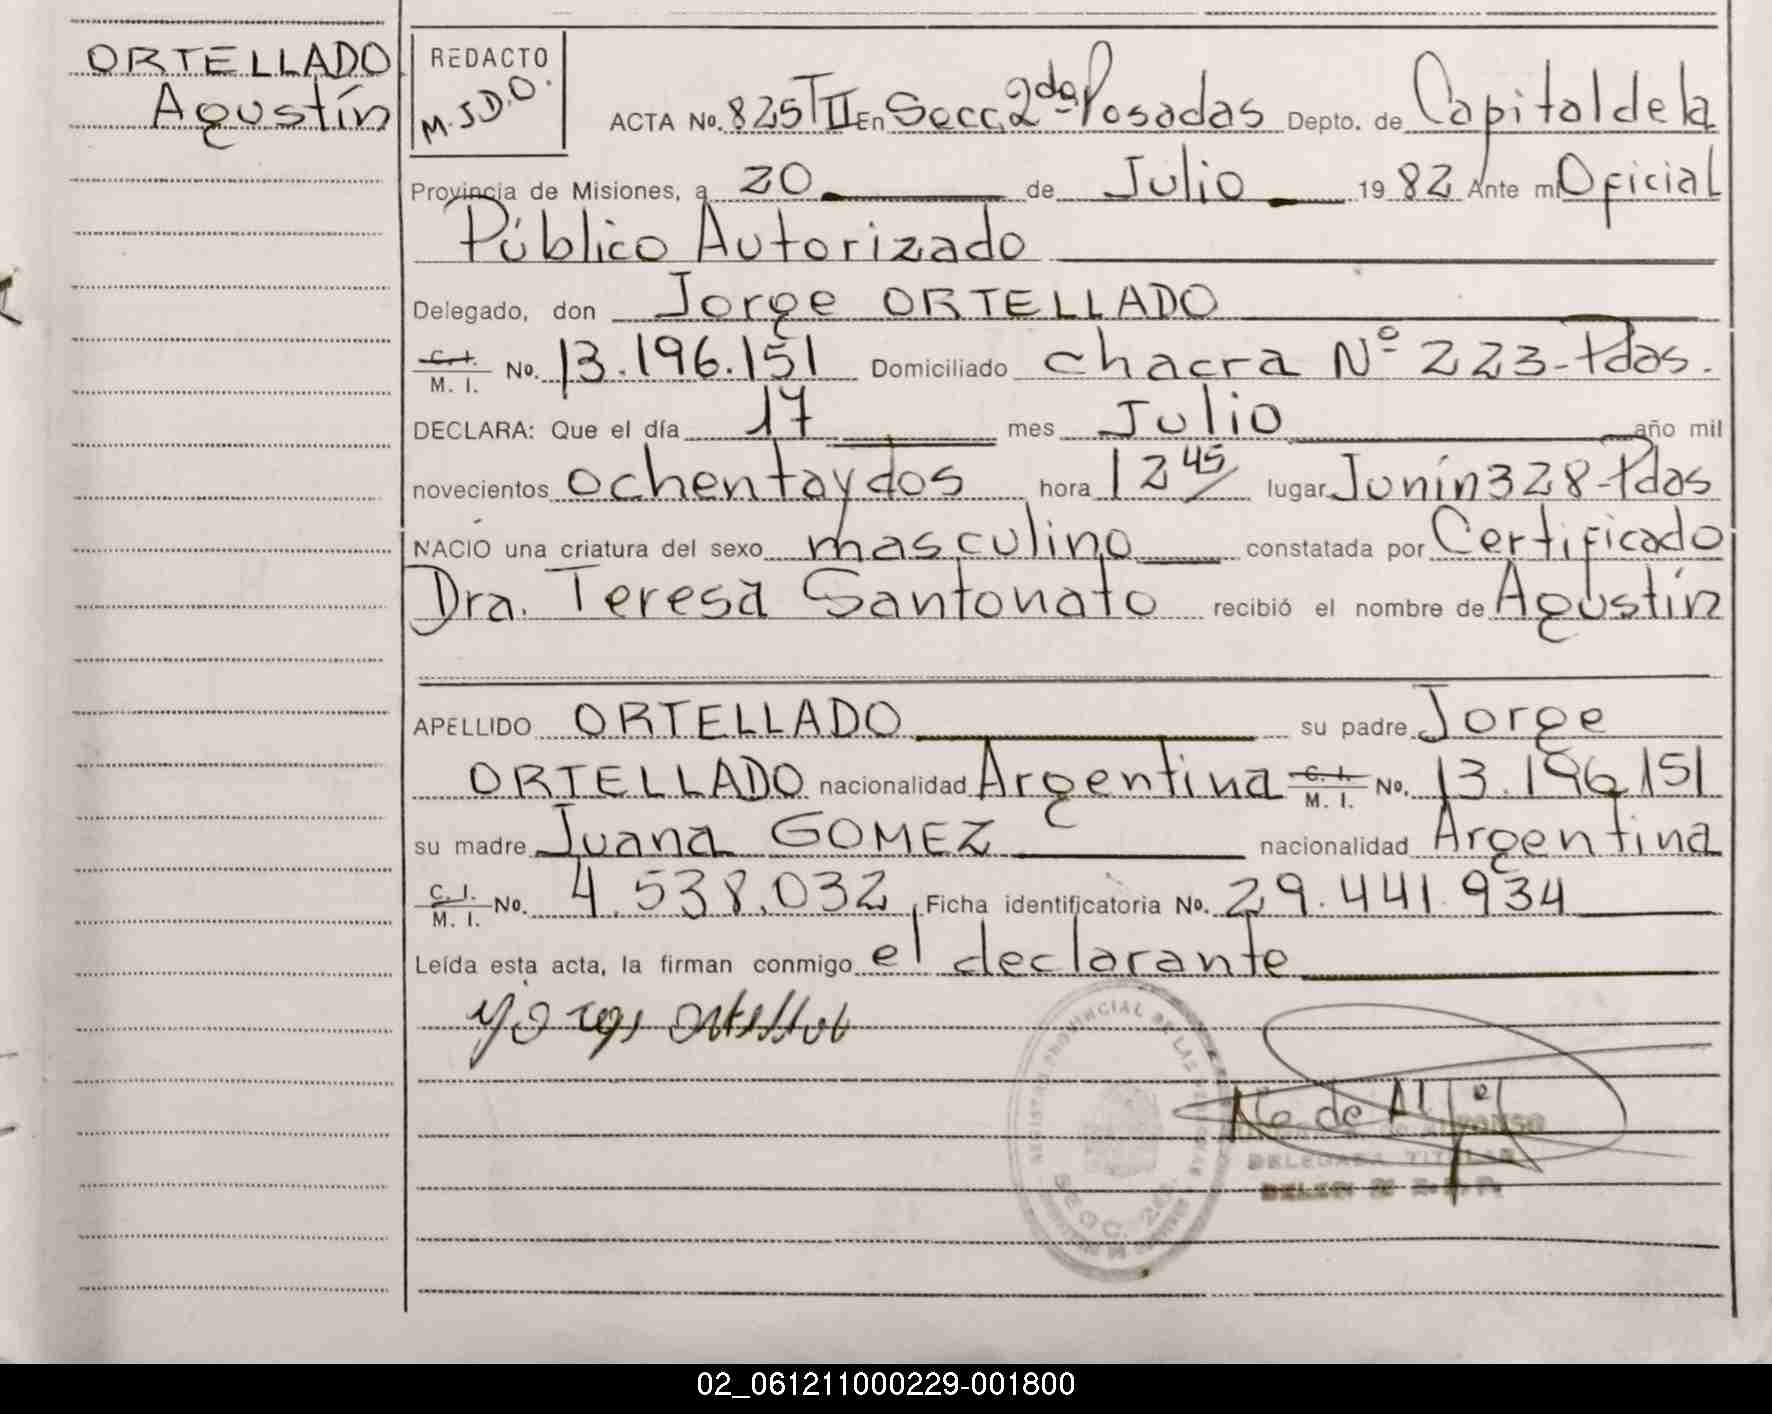 ORTELLADO
Agustín
REDACTO
M.J.D.O.
ACTA No. 825 T II En Secc. 2da Posadas Depto. de Capital de la
Provincia de Misiones, a 20 de Julio 1982 Ante mí Oficial
Público Autorizado
Delegado, don Jorge ORTELLADO
C. I. / M. I. No. 13.196.151 Domiciliado chacra Nº 223-Pdas.
DECLARA: Que el día 17 mes Julio año mil
novecientos ochenta y dos hora 12 45 lugar Junín 328-Pdas
NACIO una criatura del sexo masculino constatada por Certificado
Dra. Teresa Santonato recibió el nombre de Agustín
APELLIDO ORTELLADO su padre Jorge
ORTELLADO nacionalidad Argentina C. I. / M. I. No. 13.196.151
su madre Juana GOMEZ nacionalidad Argentina
C. I. / M. I. No. 4.538.032 Ficha identificatoria No. 29.441.934
Leída esta acta, la firman conmigo el declarante
REGISTRO PROVINCIAL DE LAS
SECC. 2da.
DELEGADA TITULAR
02_061211000229-001800